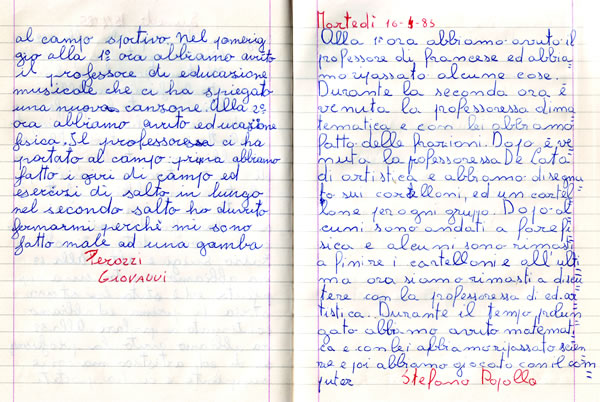 al campo sportivo. Nel pomerig
gio alla 1ª ora abbiamo avuto
il professore di educazione
musicale che ci ha spiegato
una nuova canzone. Alla 2ª
ora abbiamo avuto educazione
fisica. Il professoressa ci ha
portato al campo prima abbiamo
fatto i giri di campo ed
esercizi di salto in lungo
nel secondo salto ho dovuto
fermarmi perchè mi sono
fatto male ad una gamba
Perozzi
Giovanni
Martedì 16-4-85
Alla 1ª ora abbiamo avuto il
professore di francese ed abbia=
mo ripassato alcune cose.
Durante la seconda ora è
venuta la professoressa di ma=
tematica e con lei abbiamo
fatto delle frazioni. Dopo è ve=
nuta la professoressa De Cata
di artistica e abbiamo disegna=
to sui cartelloni, ed un cartel=
lone per ogni gruppo. Dopo al=
cuni sono andati a fare fi=
sica e alcuni sono rimasti
a finire i cartelloni e all'ulti=
ma ora siamo rimasti a discu=
tere con la professoressa di ed. ar=
tistica. Durante il tempo prolun=
gato abbiamo avuto matemat=
ica e con lei abbiamo ripassato scien=
ze e poi abbiamo giocato con il com=
puter Stefano